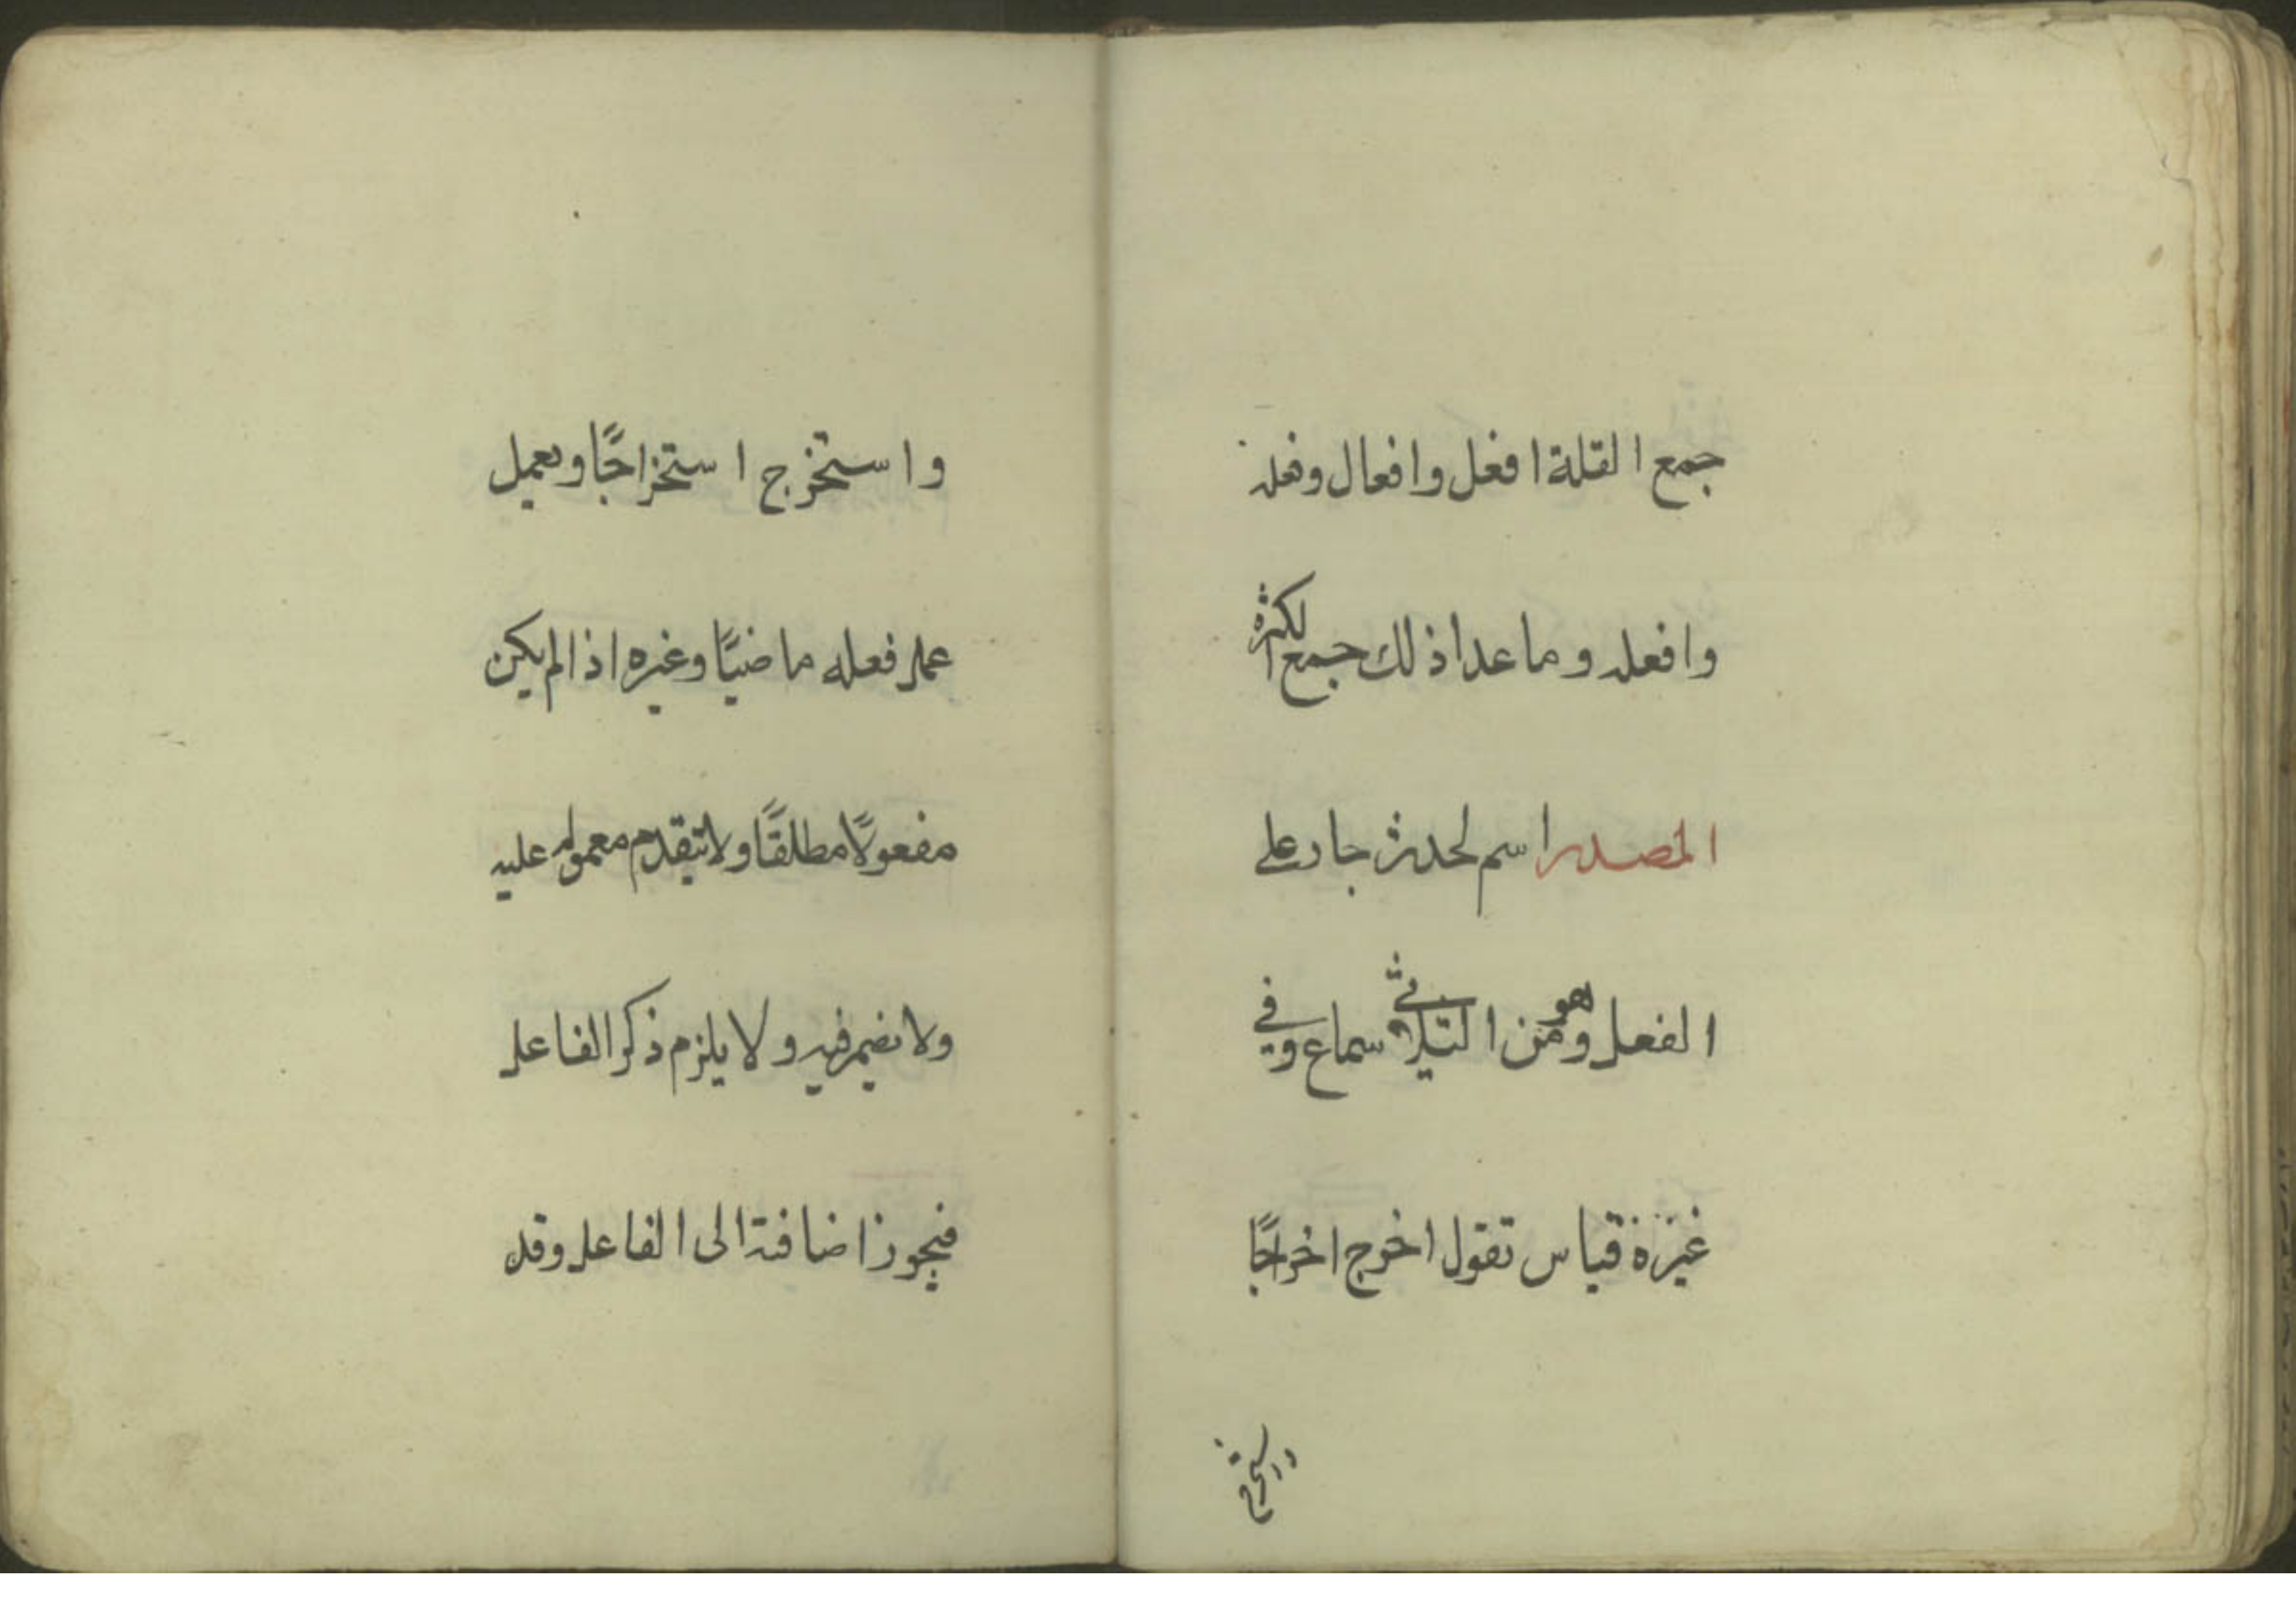 جمع القلة افعل وافعال وفعله
وافعله وما عدا ذلك جمع الكثرة
المصدر اسم لحدث جار على
الفعل وهو من الثلاثي سماع وفي
غيره قياس تقول اخرج اخراجًا
واستخرج
واستخرج استخراجًا ويعمل
عمل فعله ماضيًا وغيره اذا لم يكن
مفعولًا مطلقًا ولا يتقدم معموله عليه
ولا يضمر فيه ولا يلزم ذكر الفاعل
فيجوز اضافته الى الفاعل وقد